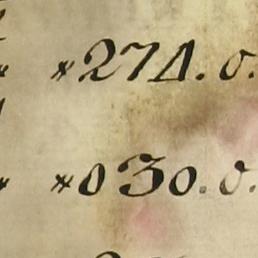 *274.0.
*030.0.